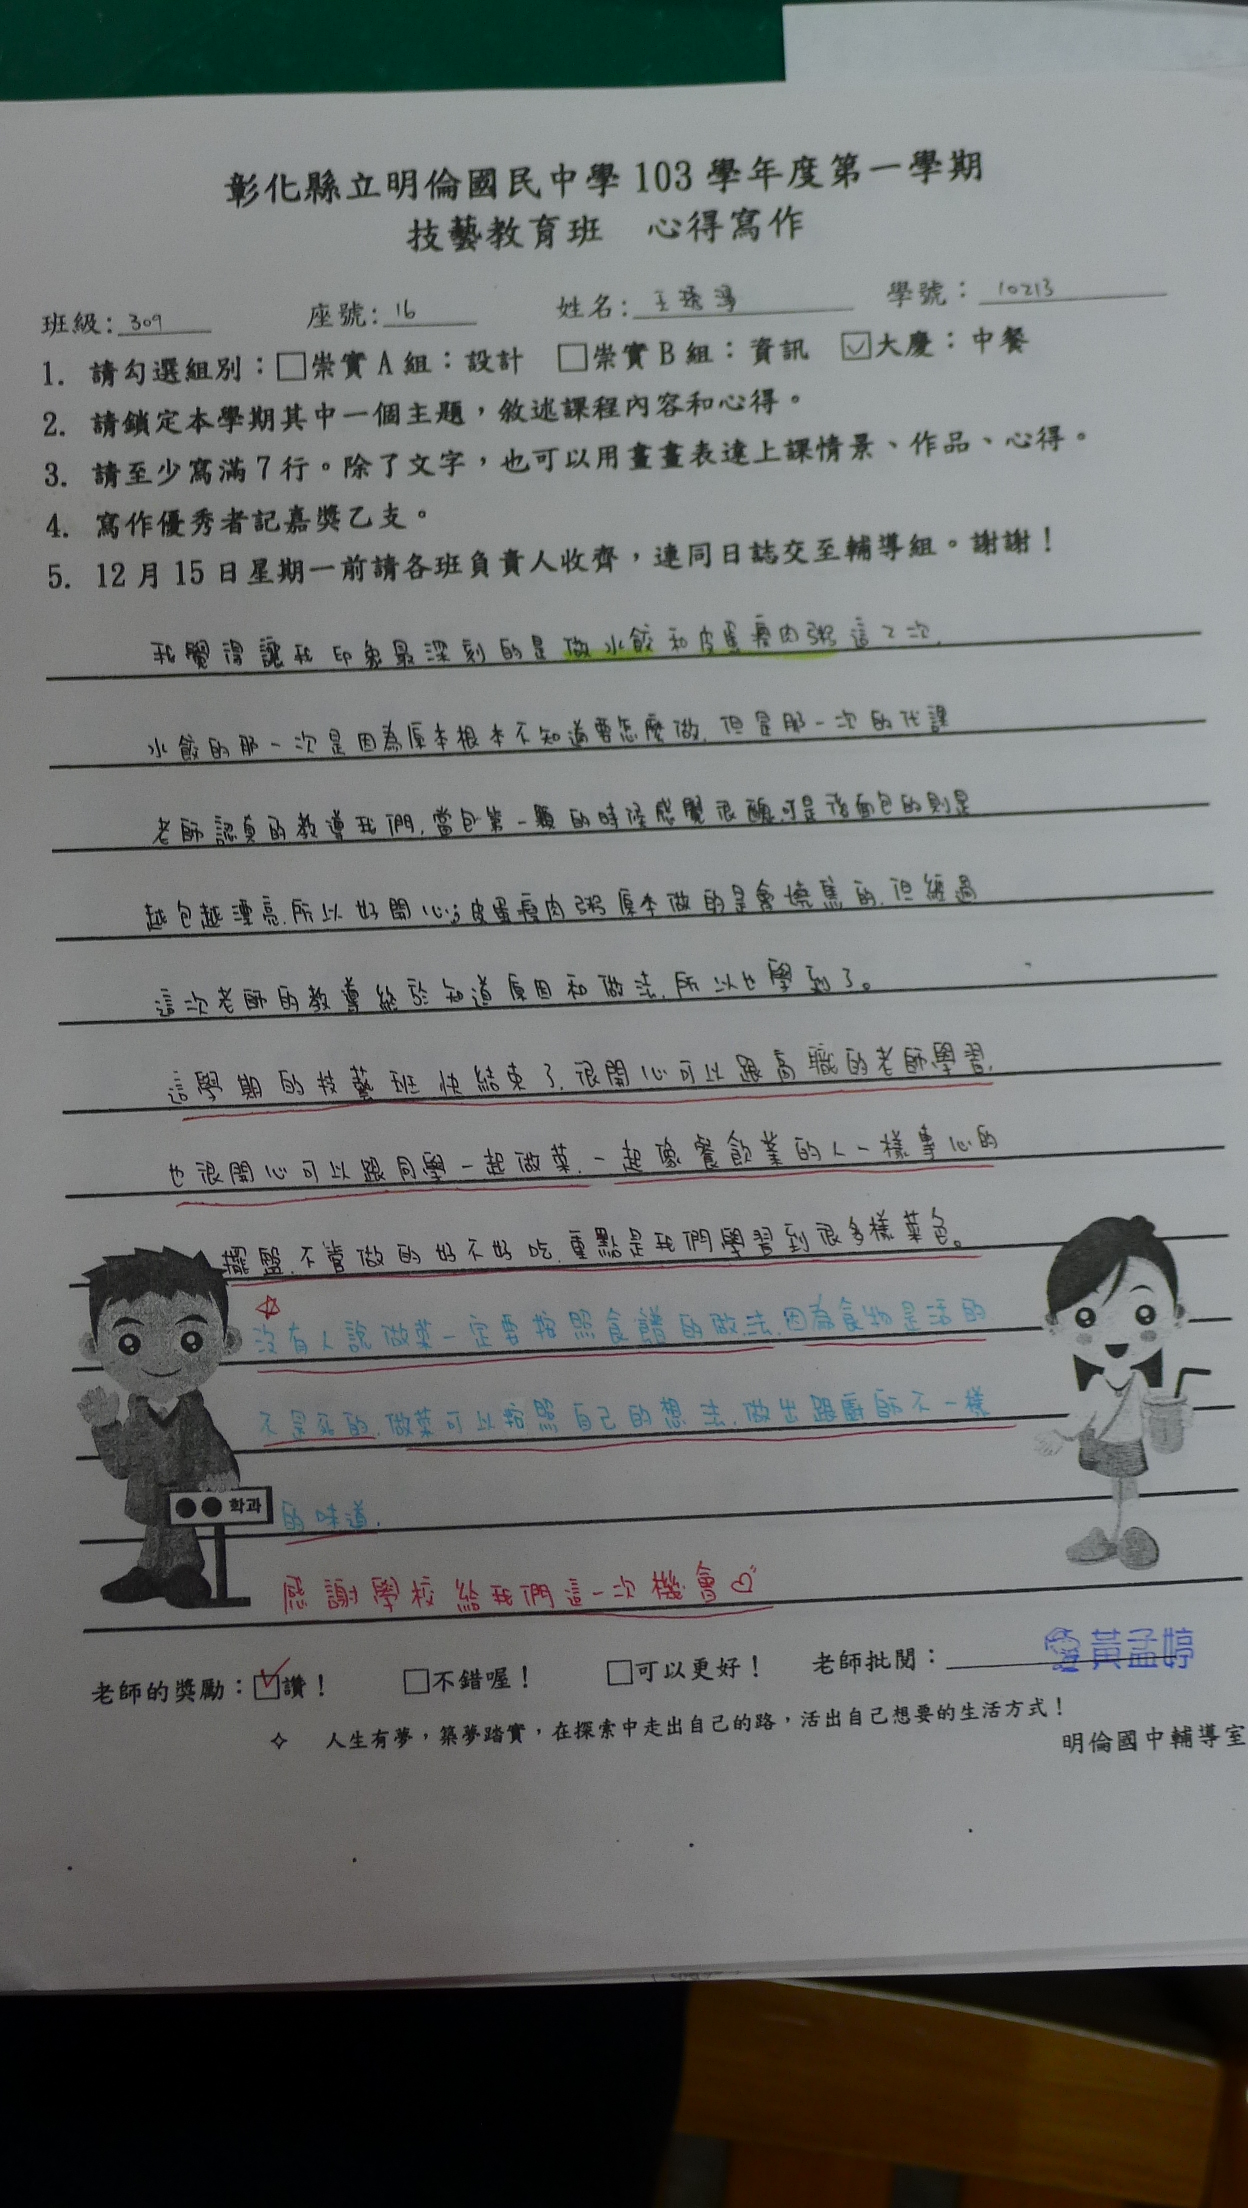 彰化縣立明倫國民中學 103 學年度第一學期
技藝教育班 心得寫作
班級: 309 座號: 16 姓名: 王 學號: 10213
1. 請勾選組別：□崇實 A 組：設計 □崇實 B 組：資訊 ☑大慶：中餐
2. 請鎖定本學期其中一個主題，敘述課程內容和心得。
3. 請至少寫滿 7 行。除了文字，也可以用畫畫表達上課情景、作品、心得。
4. 寫作優秀者記嘉獎乙支。
5. 12 月 15 日星期一前請各班負責人收齊，連同日誌交至輔導組。謝謝！
我覺得讓我印象最深刻的是做水餃和皮蛋瘦肉粥這2次,
水餃的那一次是因為原本根本不知道要怎麼做, 但是那一次的代課
老師認真的教導我們, 當包第一顆的時候感覺很醜,可是後面包的則是
越包越漂亮,所以好開心;皮蛋瘦肉粥原本做的是會燒焦的,但經過
這次老師的教導終於知道原因和做法,所以也學到了。
這學期的技藝班快結束了,很開心可以跟高職的老師學習,
也很開心可以跟同學一起做菜,一起像餐飲業的人一樣專心的
擺盤,不管做的好不好吃,重點是我們學習到很多樣菜色。
☆
沒有人說做菜一定要按照食譜的做法,因為食物是活的
不是死的,做菜可以按照自己的想法,做出跟廚師不一樣
的味道.
●● 학과
感謝學校給我們這一次機會♡
老師的獎勵：☑讚！ □不錯喔！ □可以更好！ 老師批閱： 黃孟婷
✧ 人生有夢，築夢踏實，在探索中走出自己的路，活出自己想要的生活方式！
明倫國中輔導室